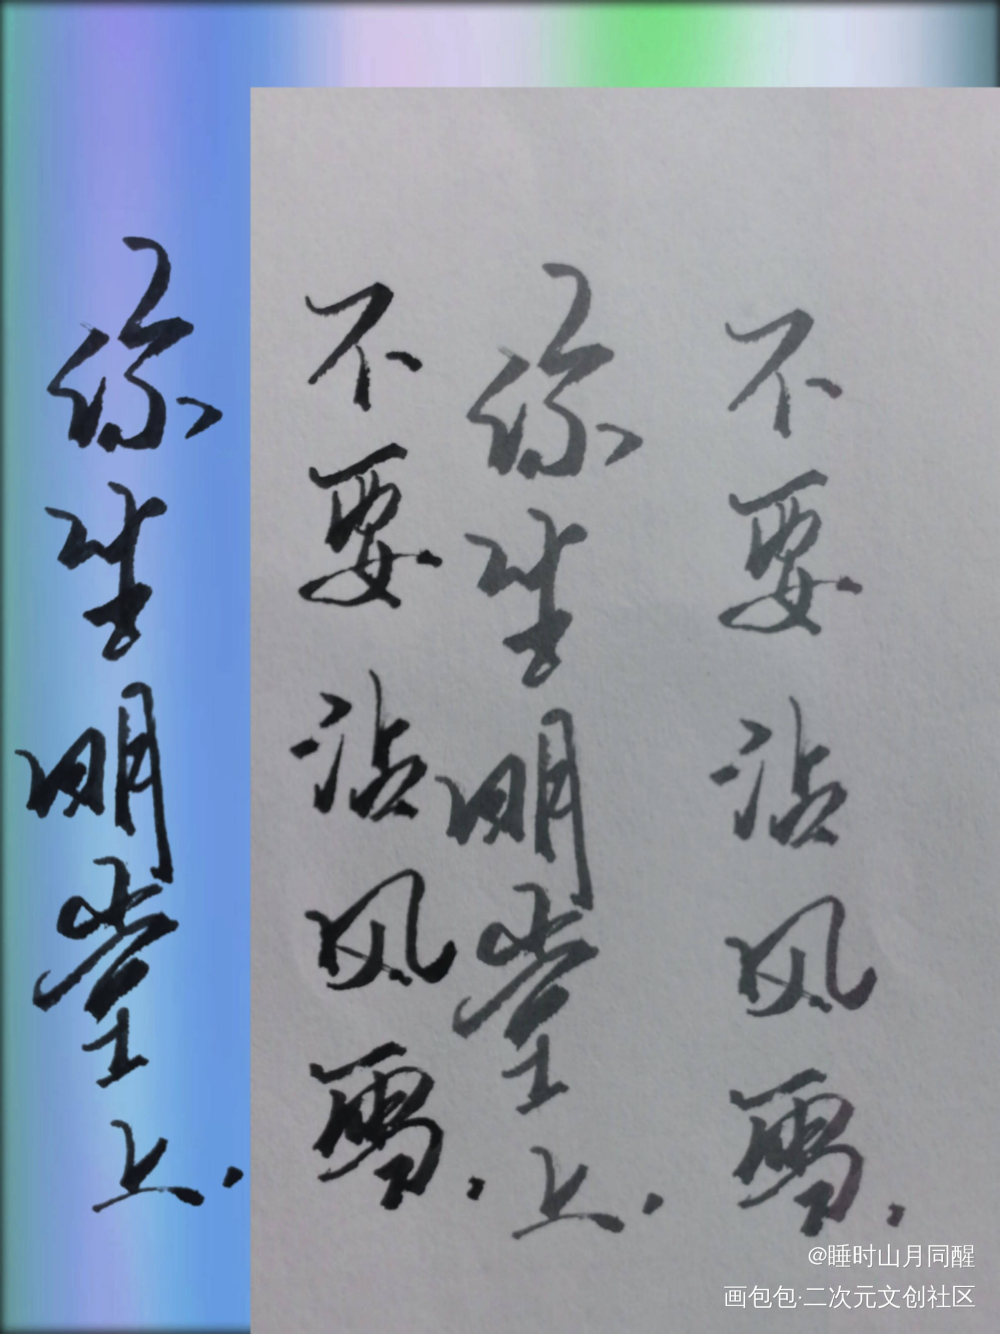 你生明堂上.
不要沾风雪.
你生明堂上.
不要沾风雪.
@睡时山月同醒
画包包·二次元文创社区